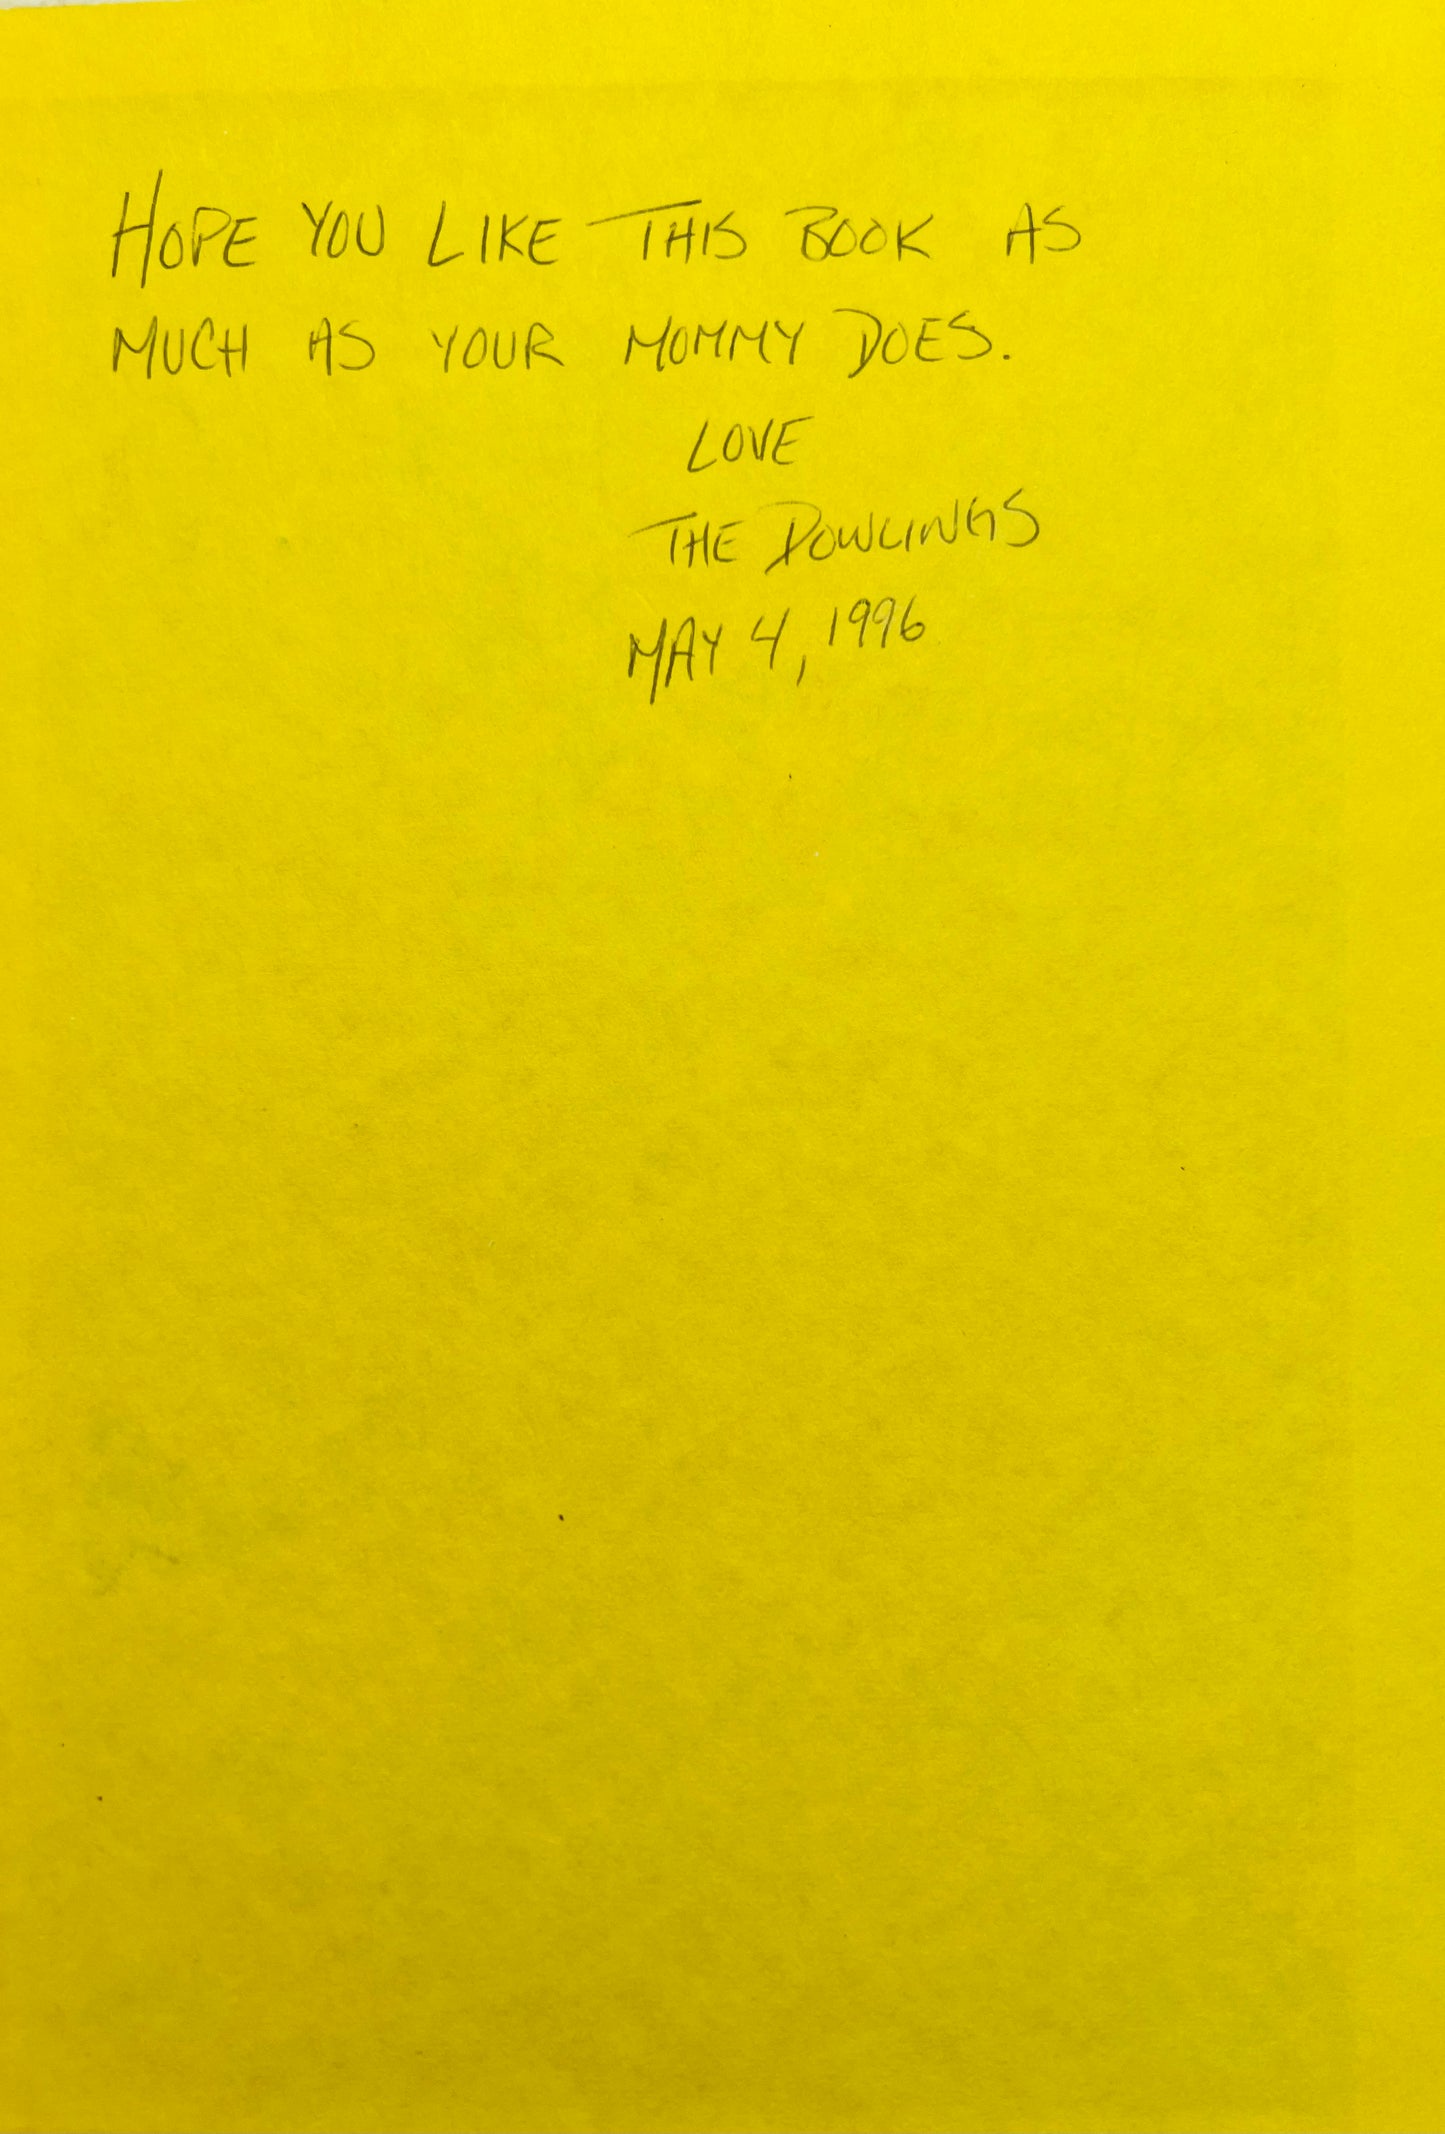 HOPE YOU LIKE THIS BOOK AS
MUCH AS YOUR MOMMY DOES.
LOVE
THE DOWLINGS
MAY 4, 1996